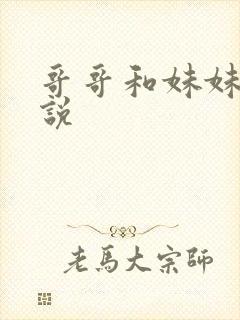 哥哥和妹妹
說
老馬大宗師